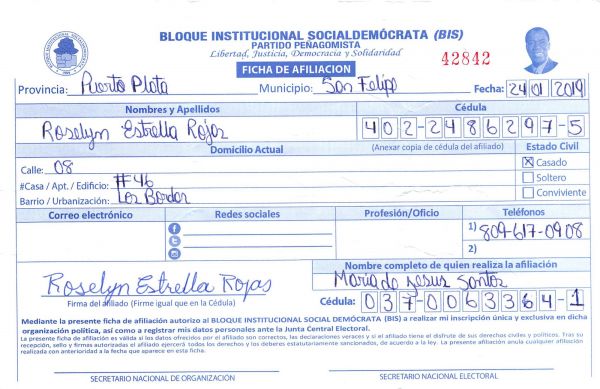 BLOQUE INSTITUCIONAL SOCIALDEMÓCRATA (BIS)
PARTIDO PEÑAGOMISTA
Libertad, Justicia, Democracia y Solidaridad
42842
FICHA DE AFILIACION
Provincia: Puerto Plata Municipio: San Felipp Fecha: 24 01 2019
Nombres y Apellidos Cédula
Roselyn Estrella Rojas 402-2486297-5
Domicilio Actual (Anexar copia de cédula del afiliado) Estado Civil
Calle: 08 Casado
#Casa / Apt. / Edificio: #46 Soltero
Barrio / Urbanización: Los Bordas Conviviente
Correo electrónico Redes sociales Profesión/Oficio Teléfonos
1) 809-617-0908
2)
Nombre completo de quien realiza la afiliación
Roselyn Estrella Rojas Maria de Jesus Santos
Firma del afiliado (Firme igual que en la Cédula) Cédula: 037-0063364-1
Mediante la presente ficha de afiliación autorizo al BLOQUE INSTITUCIONAL SOCIAL DEMÓCRATA (BIS) a realizar mi inscripción única y exclusiva en dicha
organización política, así como a registrar mis datos personales ante la Junta Central Electoral.
La presente ficha de afiliación es válida si los datos ofrecidos por el afiliado son correctos, las declaraciones veraces y si el afiliado tiene el disfrute de sus derechos civiles y políticos. Tras su
recepción, sello y firmas autorizadas el afiliado ejercerá todos los derechos y los deberes estatutariamente sancionados, de acuerdo a la ley. La presente afiliación anula cualquier afiliación
realizada con anterioridad a la fecha que aparece en esta ficha.
SECRETARIO NACIONAL DE ORGANIZACIÓN SECRETARIO NACIONAL ELECTORAL